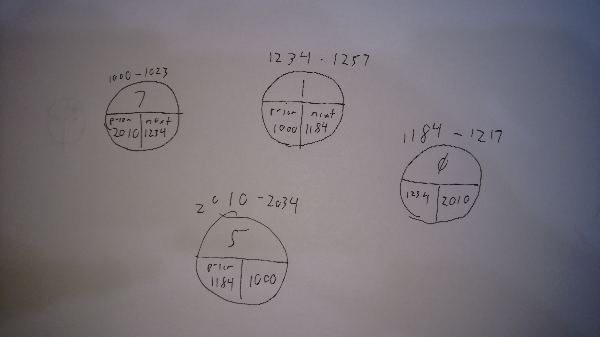 1000-1023
7
prior next
2010 1234
1234-1257
1
prior next
1000 1184
1184-1217
0
1234 2010
2010-2034
5
prior
1184 1000